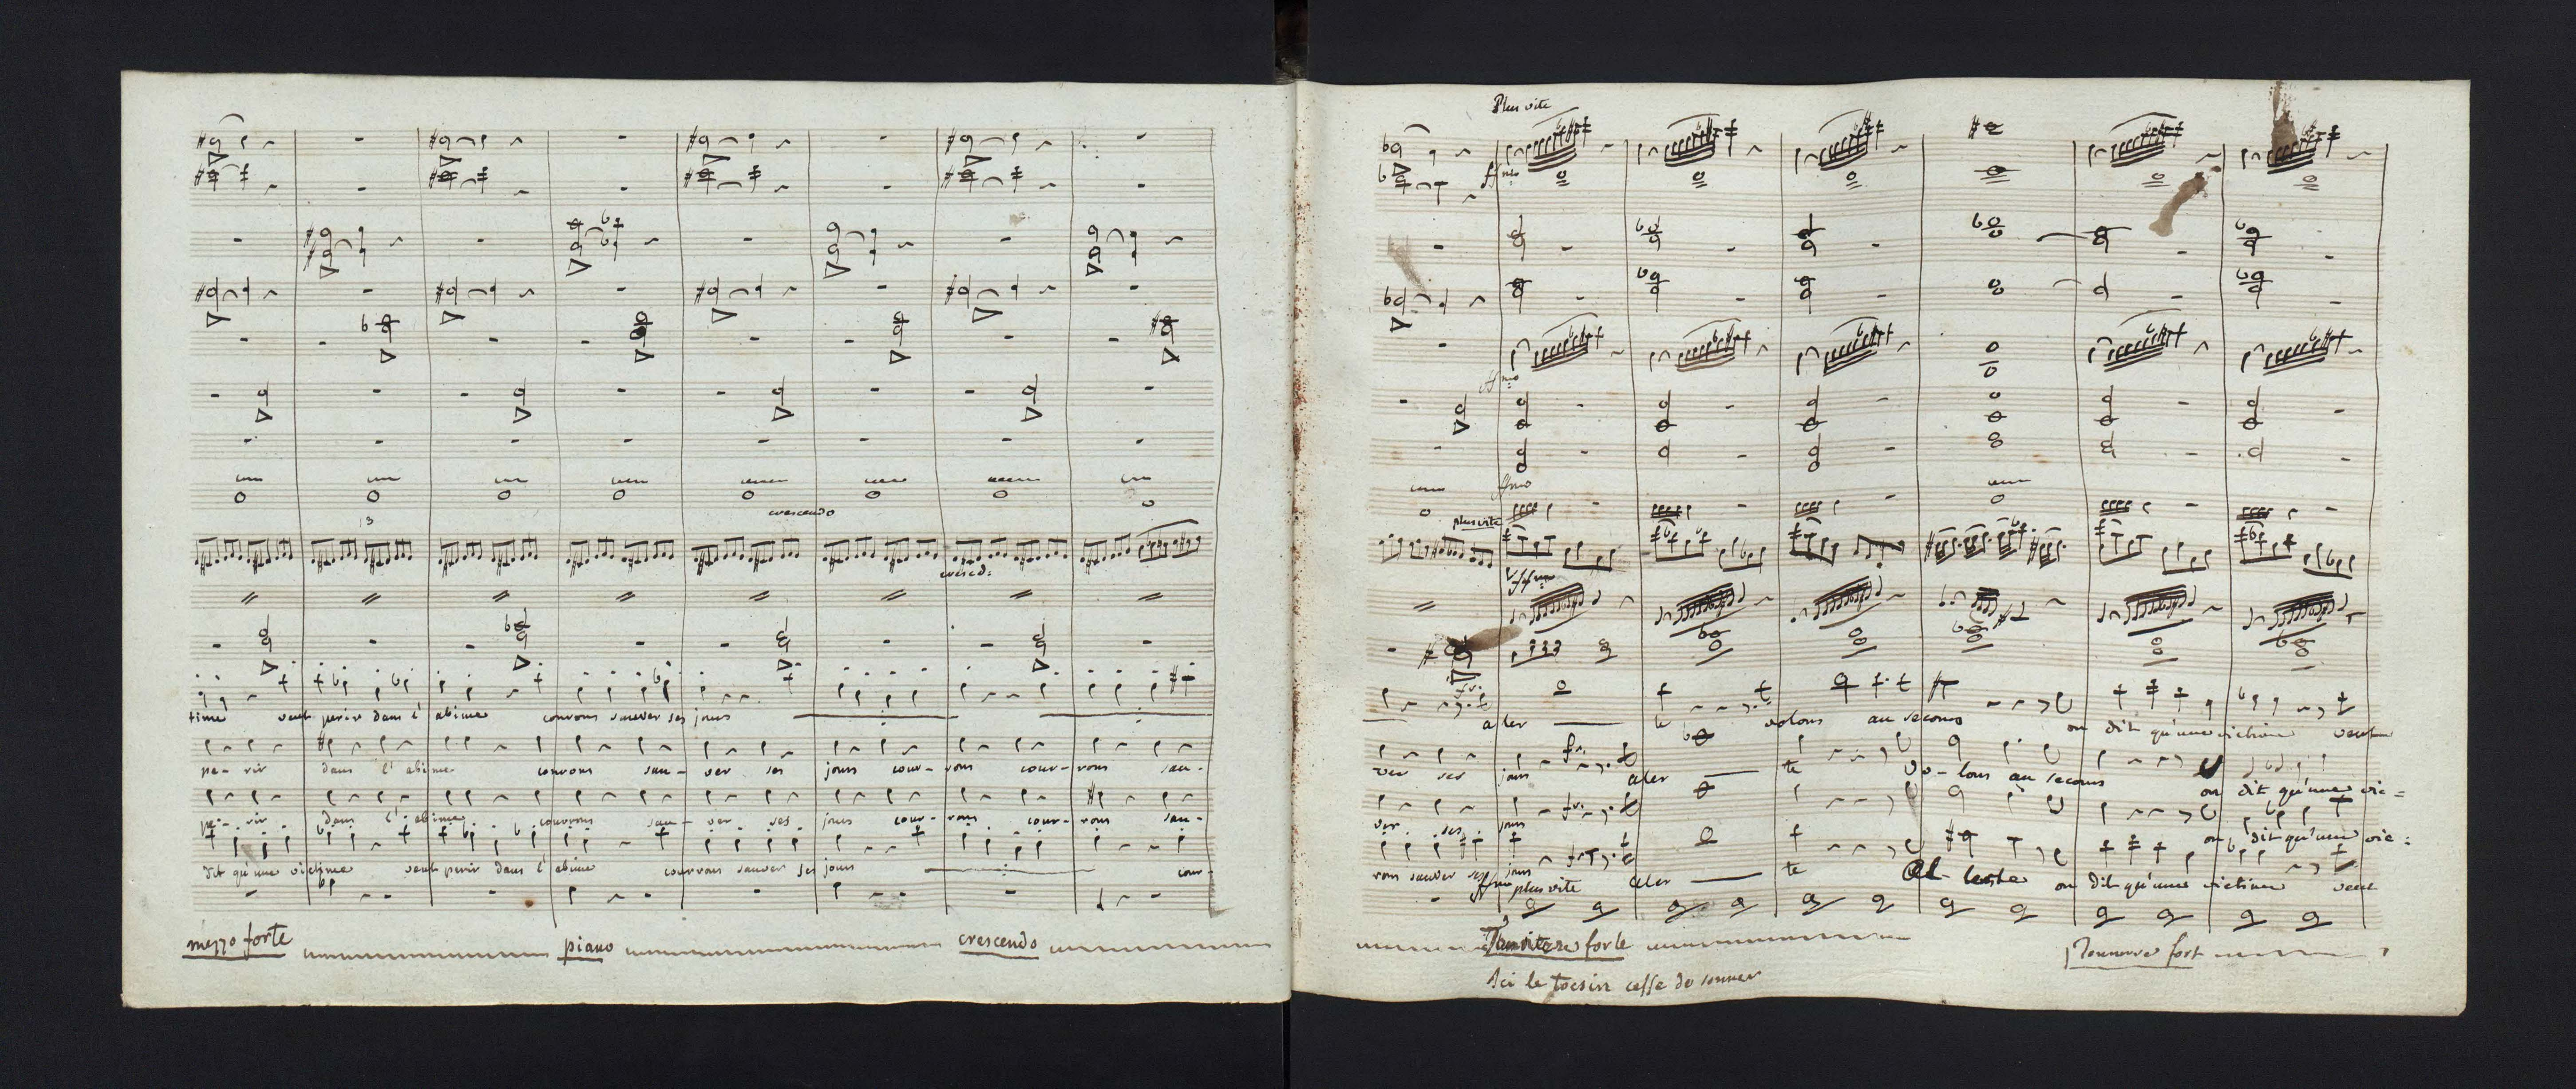 crescendo
cresced:
time veut perir dans l'abime courons sauver ses jours
pe- rir dans l'abime courons sau- ver ses jours cour- rons cour- rons sau-
pe- rir dans l'abime courrons sau- ver ses jours cour- rons cour- rons sau-
dit qu'une victime veut perir dans l'abime courrons sauver ses jours cour-
mezzo forte piano crescendo
Plus vite
ffmo
ffmo
ffmo
plus vite
aler te volons au secours on dit qu'une victime veut
ver ses jours aler te vo-lons au secours on dit qu'une vic=
ver ses jours on dit qu'une vic=
rons sauver ses jours aler te on dit qu'une victime veut
ffmo plus vite
Tonnerre forte Tonnerre fort
Ici le tocsin cesse de sonner